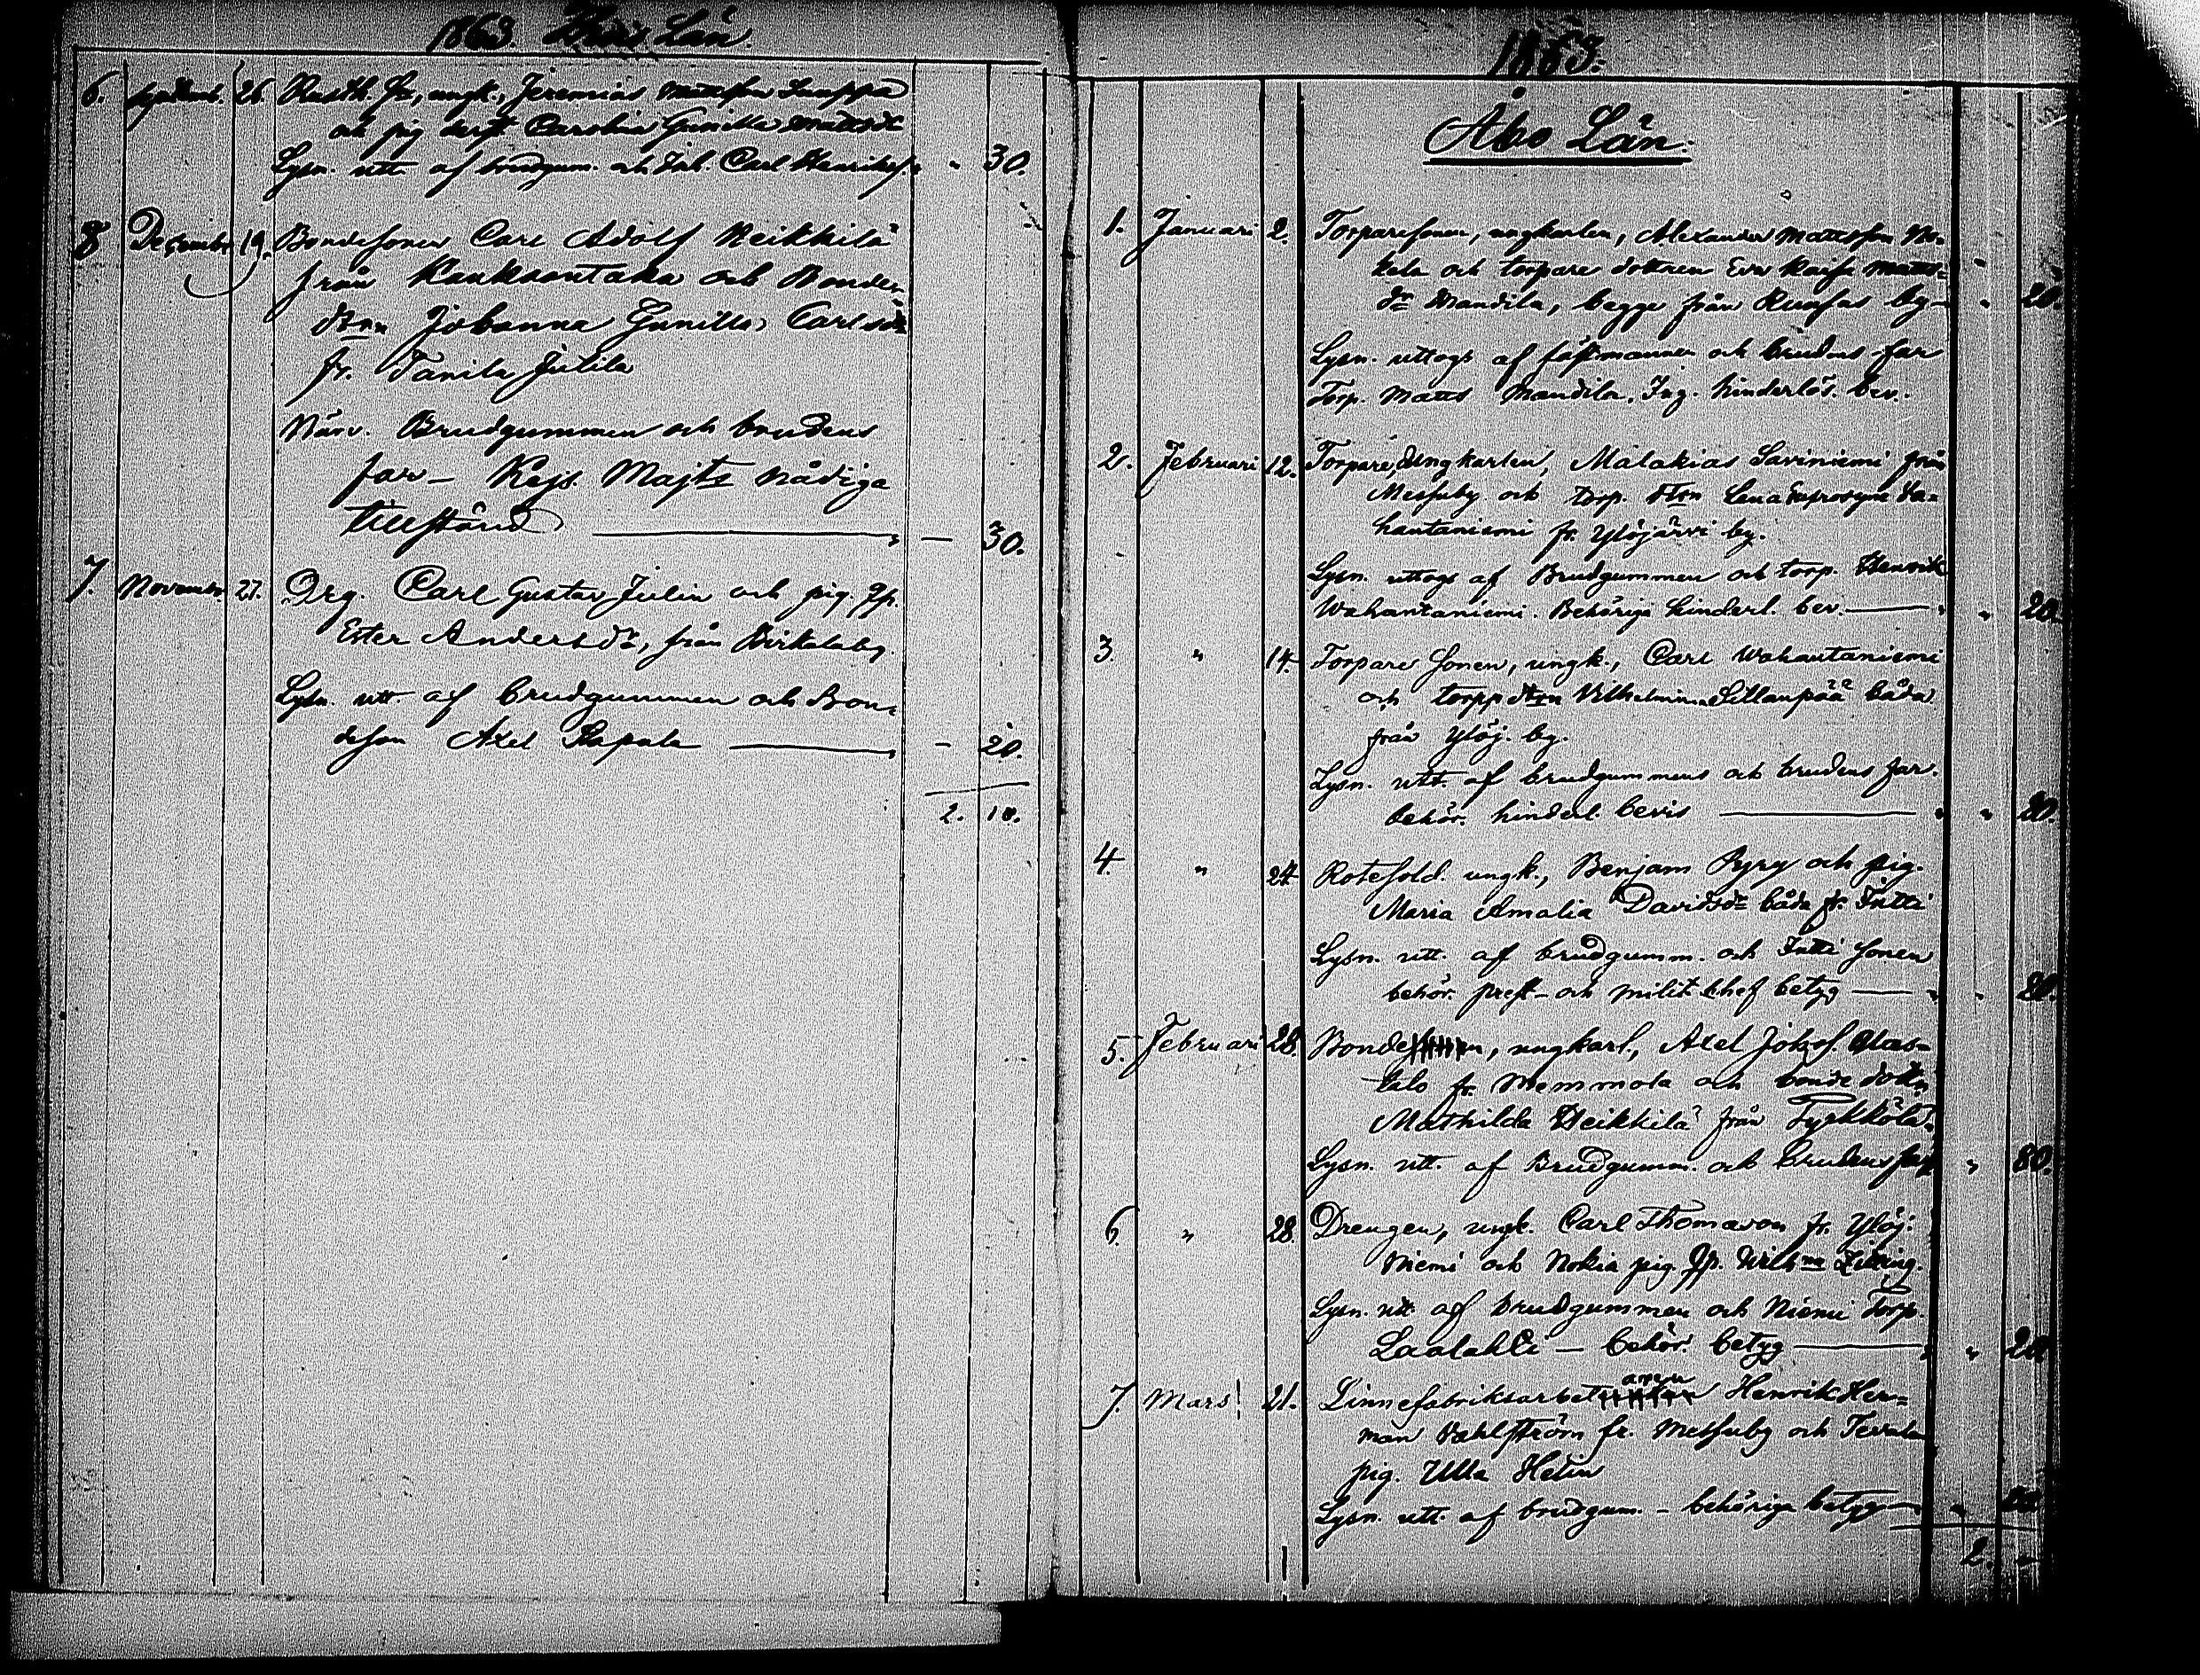 1863. Län.
6. 26. Rusth. Sn, ungk., Jeremias Mattsson
och pig dersf. Carolina Gunilla Mattsdr
Lysn. utt. af brudgum. och Inh. Carl Henrikss. " 30.
8 December 19. Bondesonen Carl Adolf Heikkilä
från Kauksontaka och Bonde
dttrn Johanna Gunilla Carlsdr
fr. Tanila Jutila
Närv. Brudgummen och brudens
far – Kejs. Majts nådiga
tillstånd — 30.
7. Novembr. 27. Drg. Carl Gustav Julin och pig. Qp.
Ester Andersdr, från Birkalaby.
Lysn. utt. af brudgummen och Bon-
deson Axel – 20.
2. 10.
1863.
Åbo Län.
1. Januari 2. Torparesonen, ungkarlen, Alexander Mattsson No-
kela och torpare dottren Eva Kaisa Matts-
dr Mandila, begge från by – " 20
Lysn. uttogs af fästmannen och brudens far
Torp. Matts Mandila. Ing. hinderlös. bev.
2. Februari 12. Torpare, Ungkarlen, Malakias Saviniemi från
Messuby och torp. dttrn Lena Eufrosyne Va-
hantaniemi fr. Ylöjärvi by.
Lysn. uttogs af Brudgummen och torp. Henrik
Wahantaniemi. Behöriga hinderl. bev. — " 20.
3. " 14. Torpare sonen, ungk., Carl Wahantaniemi
och torpp dttrn Vilhelmina Sillanpää båda
från Ylöj. by.
Lysn. utt. af brudgummens och brudens far.
behör. hinderl. bevis — " 20.
4. " 24 Rotesold. ungk., Benjam Pyry och pig.
Maria Amalia Davidsdr båda fr. Jutti
Lysn. utt. af brudgumm. och Jutti sonen
behör. prest- och milit. chef betyg — " 20.
5. Februari 28. Bonden, ungkarl, Axel Johsof. Ylas-
talo fr. Memmola och bonde dottr.
Mathilda Heikkilä från Tyrkkölä.
Lysn. utt. af Brudgumm. och brudens far " 80.
6. " 28. Drengen, ungk. Carl Thomason fr. Ylöj:
Niemi och Nokia pig. Qp. Wilhna
Lysn. utt. af brudgummen och Niemi Torp.
Laalahti — behör. betyg — " 20
7. Mars! 21. Linnefabriksarbetaren Henrik Her-
man Vahlström fr. Messuby och
pig. Ulla Helin
Lysn. utt. af brudgum. – behöriga betyg — "
2. –